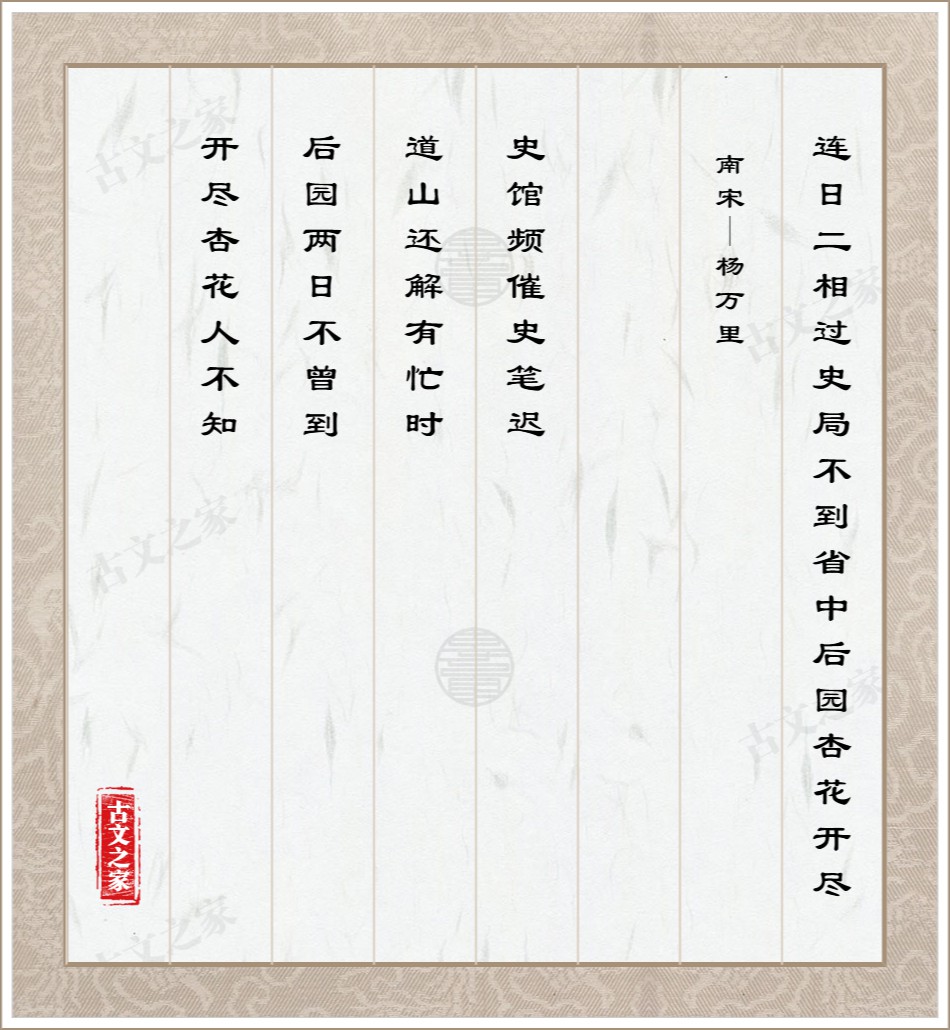 连日二相过史局不到省中后园杏花开尽
南宋—杨万里
史馆频催史笔迟
道山还解有忙时
后园两日不曾到
开尽杏花人不知
古文之家
古文之家
古文之家
古文之家
古文之家
古文之家